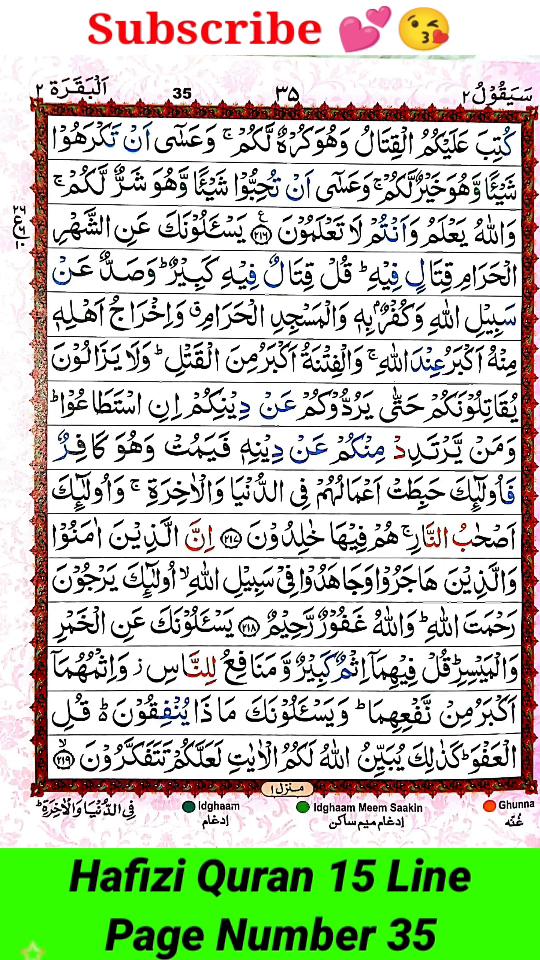 Subscribe 💕😘
سَيَقُوْلُ ٢ ٣٥ 35 اَلْبَقَرَة ٢
كُتِبَ عَلَيْكُمُ الْقِتَالُ وَهُوَ كُرْهٌ لَّكُمْ ۚ وَعَسٰٓى اَنْ تَكْرَهُوْا
شَيْئًا وَّهُوَ خَيْرٌ لَّكُمْ ۚ وَعَسٰٓى اَنْ تُحِبُّوْا شَيْئًا وَّهُوَ شَرٌّ لَّكُمْ ؕ
وَاللّٰهُ يَعْلَمُ وَاَنْتُمْ لَا تَعْلَمُوْنَ ﴿٢١٦﴾ يَسْـَٔلُوْنَكَ عَنِ الشَّهْرِ
الْحَرَامِ قِتَالٍ فِيْهِ ؕ قُلْ قِتَالٌ فِيْهِ كَبِيْرٌ ؕ وَصَدٌّ عَنْ
سَبِيْلِ اللّٰهِ وَكُفْرٌۢ بِهٖ وَالْمَسْجِدِ الْحَرَامِ ۗ وَاِخْرَاجُ اَهْلِهٖ
مِنْهُ اَكْبَرُ عِنْدَ اللّٰهِ ۚ وَالْفِتْنَةُ اَكْبَرُ مِنَ الْقَتْلِ ؕ وَلَا يَزَالُوْنَ
يُقَاتِلُوْنَكُمْ حَتّٰى يَرُدُّوْكُمْ عَنْ دِيْنِكُمْ اِنِ اسْتَطَاعُوْا ؕ
وَمَنْ يَّرْتَدِدْ مِنْكُمْ عَنْ دِيْنِهٖ فَيَمُتْ وَهُوَ كَافِرٌ
فَاُولٰٓئِكَ حَبِطَتْ اَعْمَالُهُمْ فِى الدُّنْيَا وَالْاٰخِرَةِ ۚ وَاُولٰٓئِكَ
اَصْحٰبُ النَّارِ ۚ هُمْ فِيْهَا خٰلِدُوْنَ ﴿٢١٧﴾ اِنَّ الَّذِيْنَ اٰمَنُوْا
وَالَّذِيْنَ هَاجَرُوْا وَجَاهَدُوْا فِىْ سَبِيْلِ اللّٰهِ ۙ اُولٰٓئِكَ يَرْجُوْنَ
رَحْمَتَ اللّٰهِ ؕ وَاللّٰهُ غَفُوْرٌ رَّحِيْمٌ ﴿٢١٨﴾ يَسْـَٔلُوْنَكَ عَنِ الْخَمْرِ
وَالْمَيْسِرِ ؕ قُلْ فِيْهِمَآ اِثْمٌ كَبِيْرٌ وَّمَنَافِعُ لِلنَّاسِ ز وَاِثْمُهُمَآ
اَكْبَرُ مِنْ نَّفْعِهِمَا ؕ وَيَسْـَٔلُوْنَكَ مَا ذَا يُنْفِقُوْنَ ۬ؕ قُلِ
الْعَفْوَ ؕ كَذٰلِكَ يُبَيِّنُ اللّٰهُ لَكُمُ الْاٰيٰتِ لَعَلَّكُمْ تَتَفَكَّرُوْنَ ﴿٢١٩﴾
منزل ١
فِى الدُّنْيَا وَالْاٰخِرَةِ ؕ Idghaam Idghaam Meem Saakin Ghunna
إدغام إدغام ميم ساكن غُنّه
Hafizi Quran 15 Line
Page Number 35